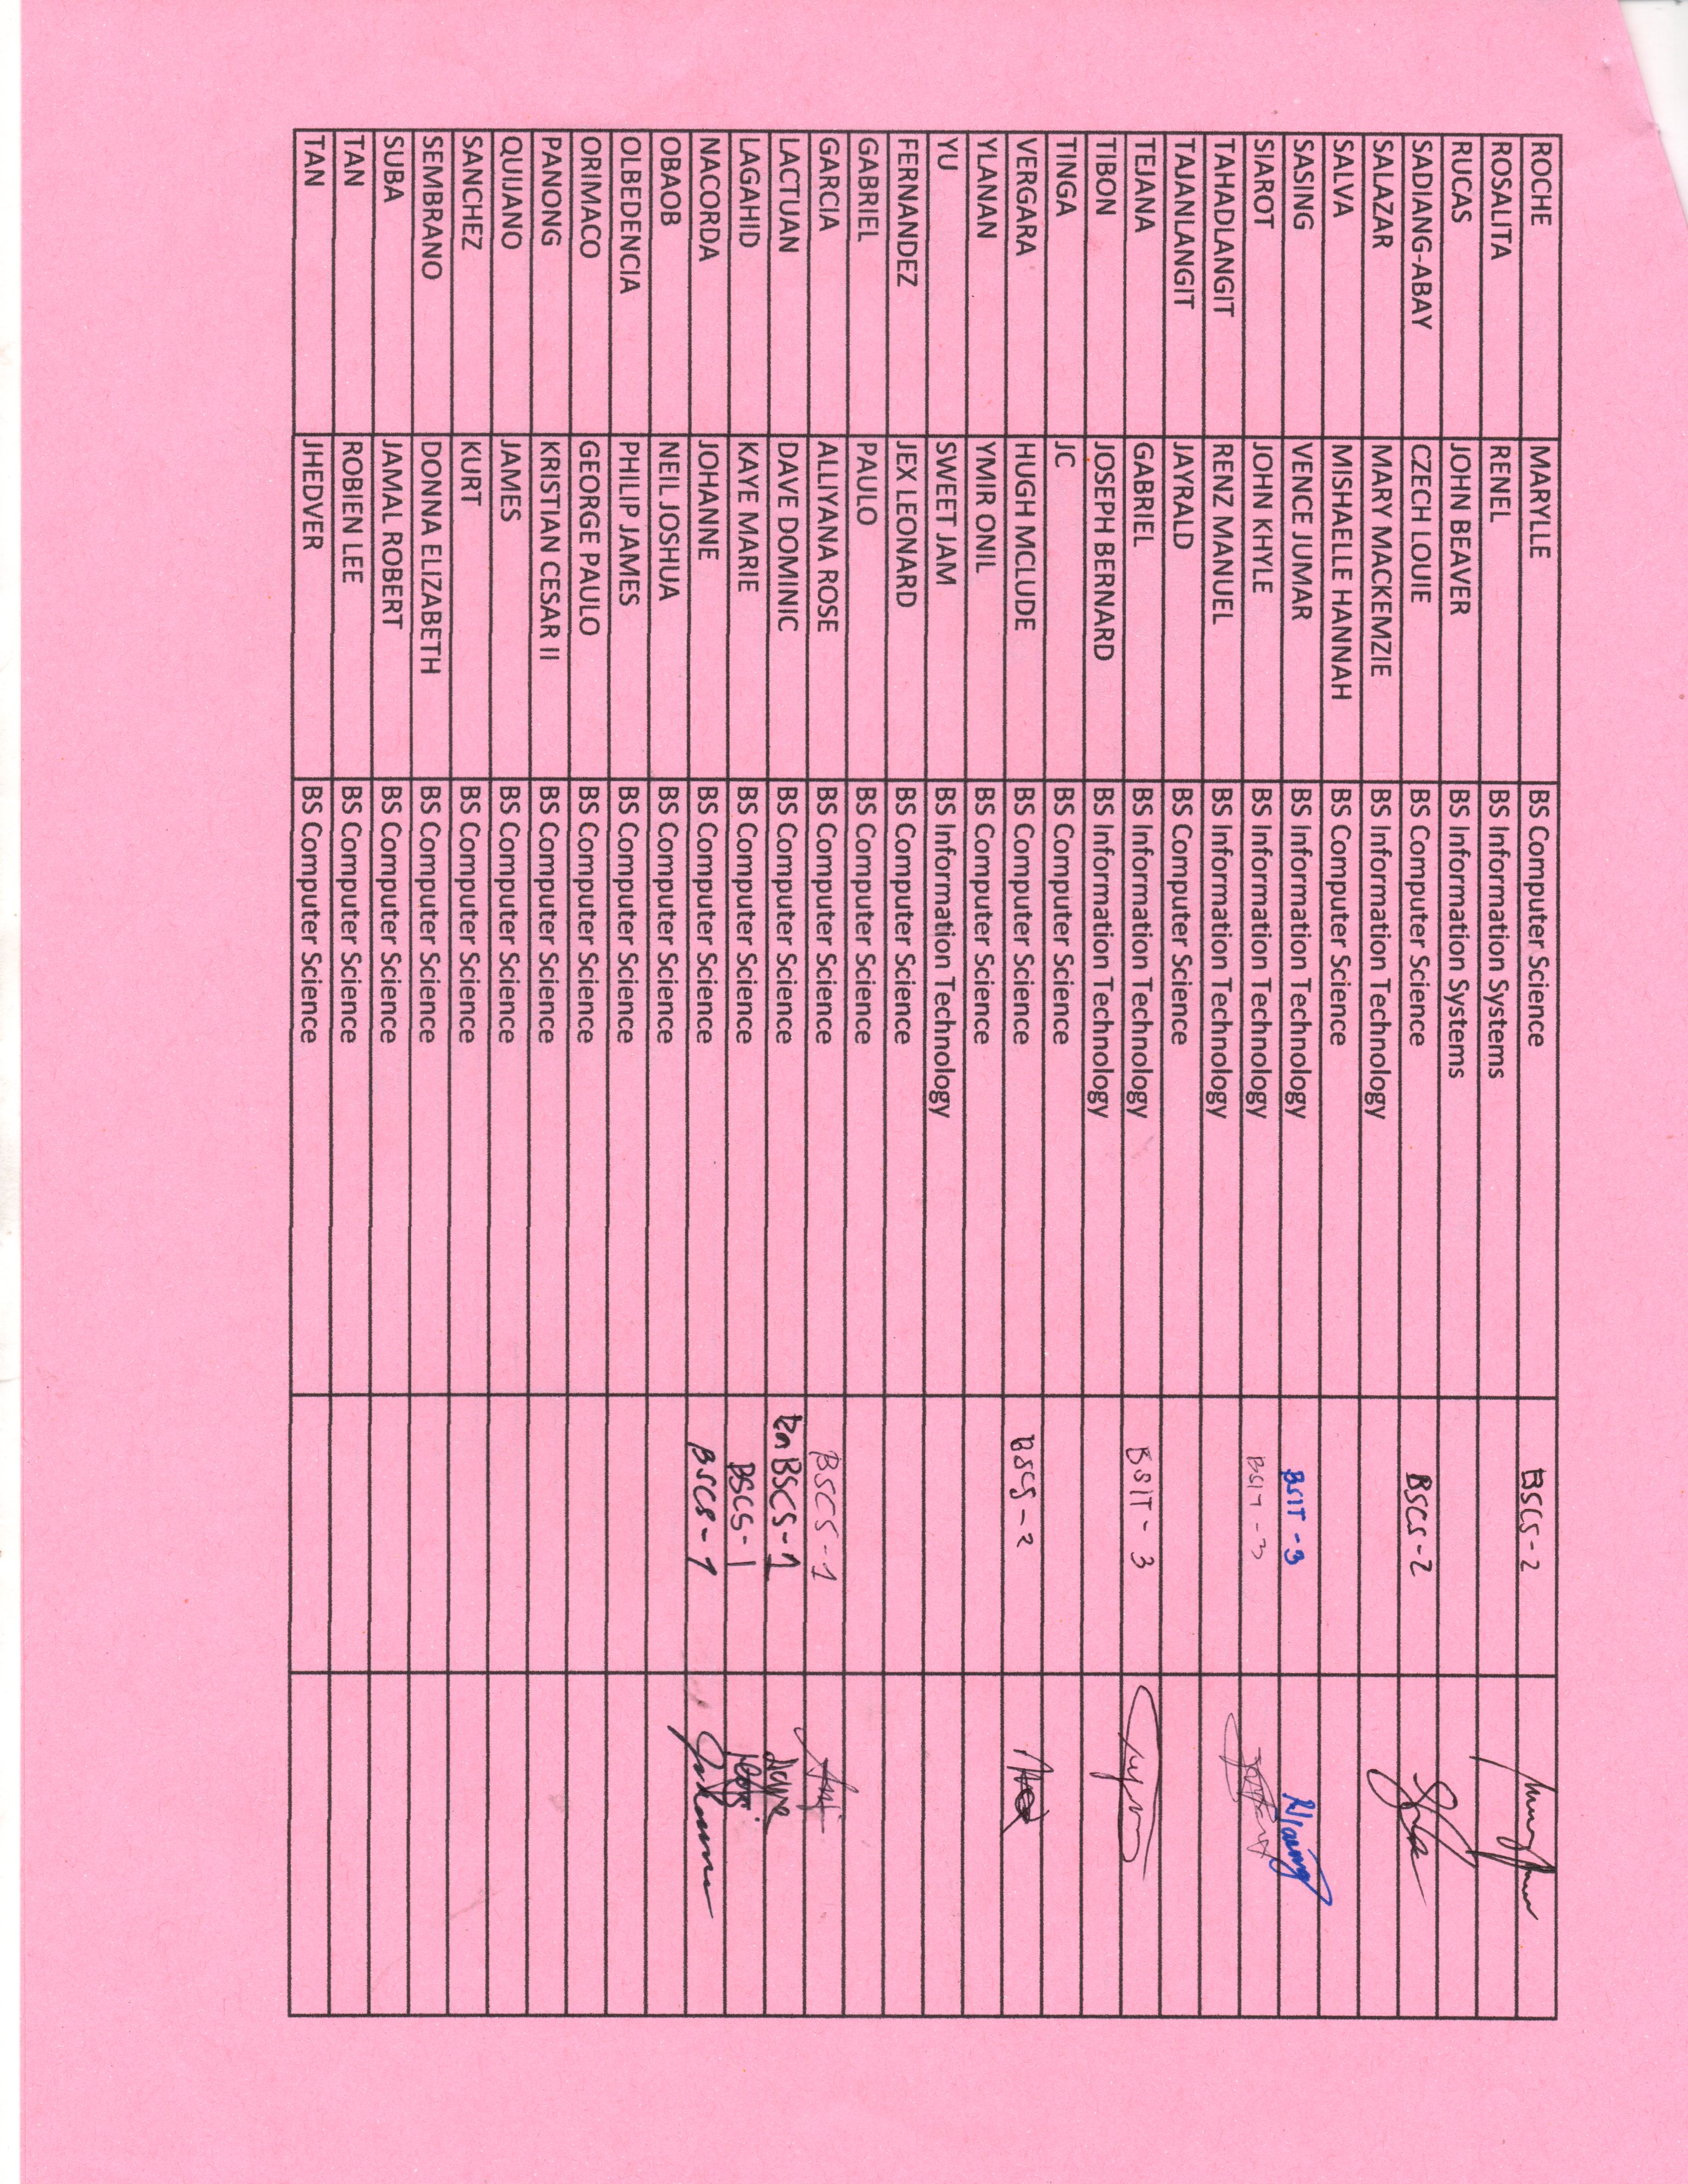 ROCHE MARYLLE BS Computer Science BSCS-2
ROSALITA RENEL BS Information Systems
RUCAS JOHN BEAVER BS Information Systems
SADIANG-ABAY CZECH LOUIE BS Computer Science BSCS-2
SALAZAR MARY MACKEMZIE BS Information Technology
SALVA MISHAELLE HANNAH BS Computer Science
SASING VENCE JUMAR BS Information Technology BSIT-3
SIAROT JOHN KHYLE BS Information Technology BSIT-3
TAHADLANGIT RENZ MANUEL BS Information Technology
TAJANLANGIT JAYRALD BS Computer Science
TEJANA GABRIEL BS Information Technology BSIT-3
TIBON JOSEPH BERNARD BS Information Technology
TINGA JC BS Computer Science
VERGARA HUGH MCLUDE BS Computer Science BSCS-2
YLANAN YMIR ONIL BS Computer Science
YU SWEET JAM BS Information Technology
FERNANDEZ JEX LEONARD BS Computer Science
GABRIEL PAULO BS Computer Science
GARCIA ALLIYANA ROSE BS Computer Science BSCS-1
LACTUAN DAVE DOMINIC BS Computer Science BSCS-1
LAGAHID KAYE MARIE BS Computer Science BSCS-1
NACORDA JOHANNE BS Computer Science BSCS-1 Johanne
OBAOB NEIL JOSHUA BS Computer Science
OLBEDENCIA PHILIP JAMES BS Computer Science
ORIMACO GEORGE PAULO BS Computer Science
PANONG KRISTIAN CESAR II BS Computer Science
QUIJANO JAMES BS Computer Science
SANCHEZ KURT BS Computer Science
SEMBRANO DONNA ELIZABETH BS Computer Science
SUBA JAMAL ROBERT BS Computer Science
TAN ROBIEN LEE BS Computer Science
TAN JHEDVER BS Computer Science